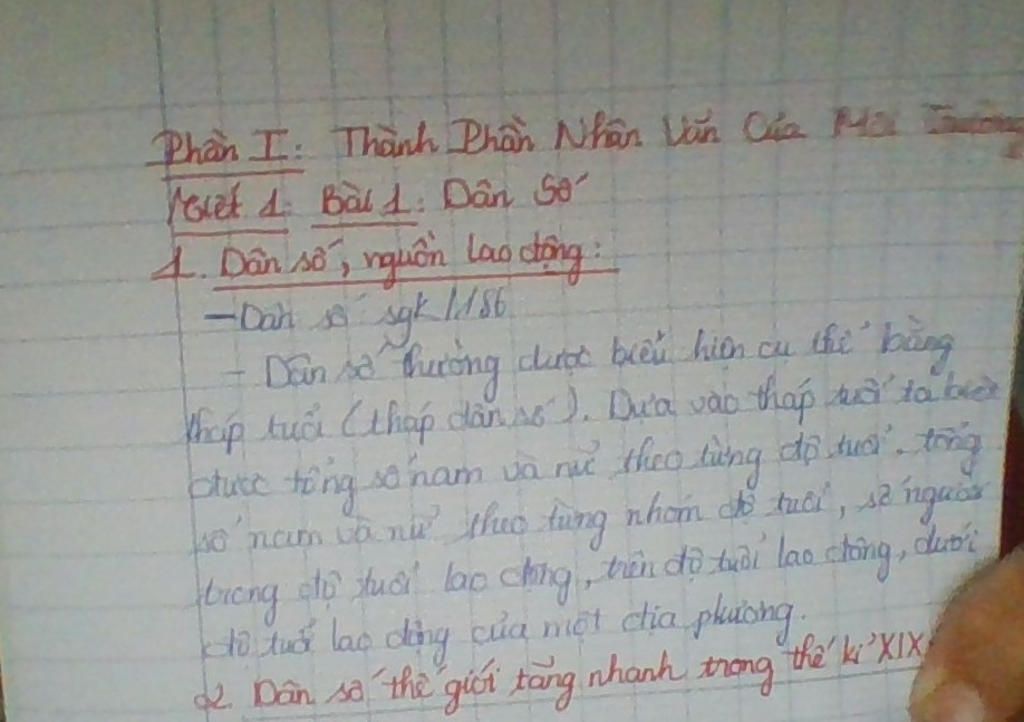 Phần I: Thành Phần Nhân Văn Của Môi Trường
Tiết 1: Bài 1: Dân Số
1. Dân số, nguồn lao động:
- Dân số sgk/186
- Dân số thường được biểu hiện cụ thể bằng
tháp tuổi (tháp dân số). Dựa vào tháp tuổi ta biết
được tổng số nam và nữ theo từng độ tuổi, tổng
số nam và nữ theo từng nhóm độ tuổi, số người
trong độ tuổi lao động, trên độ tuổi lao động, dưới
độ tuổi lao động của một địa phương.
2. Dân số thế giới tăng nhanh trong thế kỉ XIX